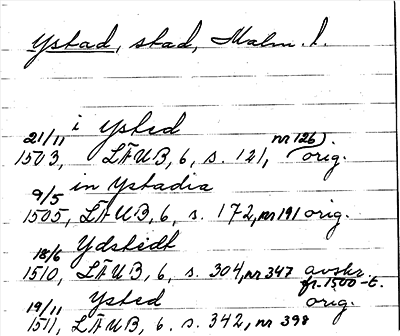 Ystad, stad, Malm. l.
i Ysted
21/11 nr 126).
1503, LÄUB, 6, s. 121, orig.
in Ystadia
9/5
1505, LÄUB, 6, s. 172, nr 191 orig.
Ydstedt
18/6
1510, LÄUB, 6, s. 304, nr 347 avskr.
fr. 1500-t.
Ysted
19/11 orig.
1511, LÄUB, 6. s. 342, nr 398